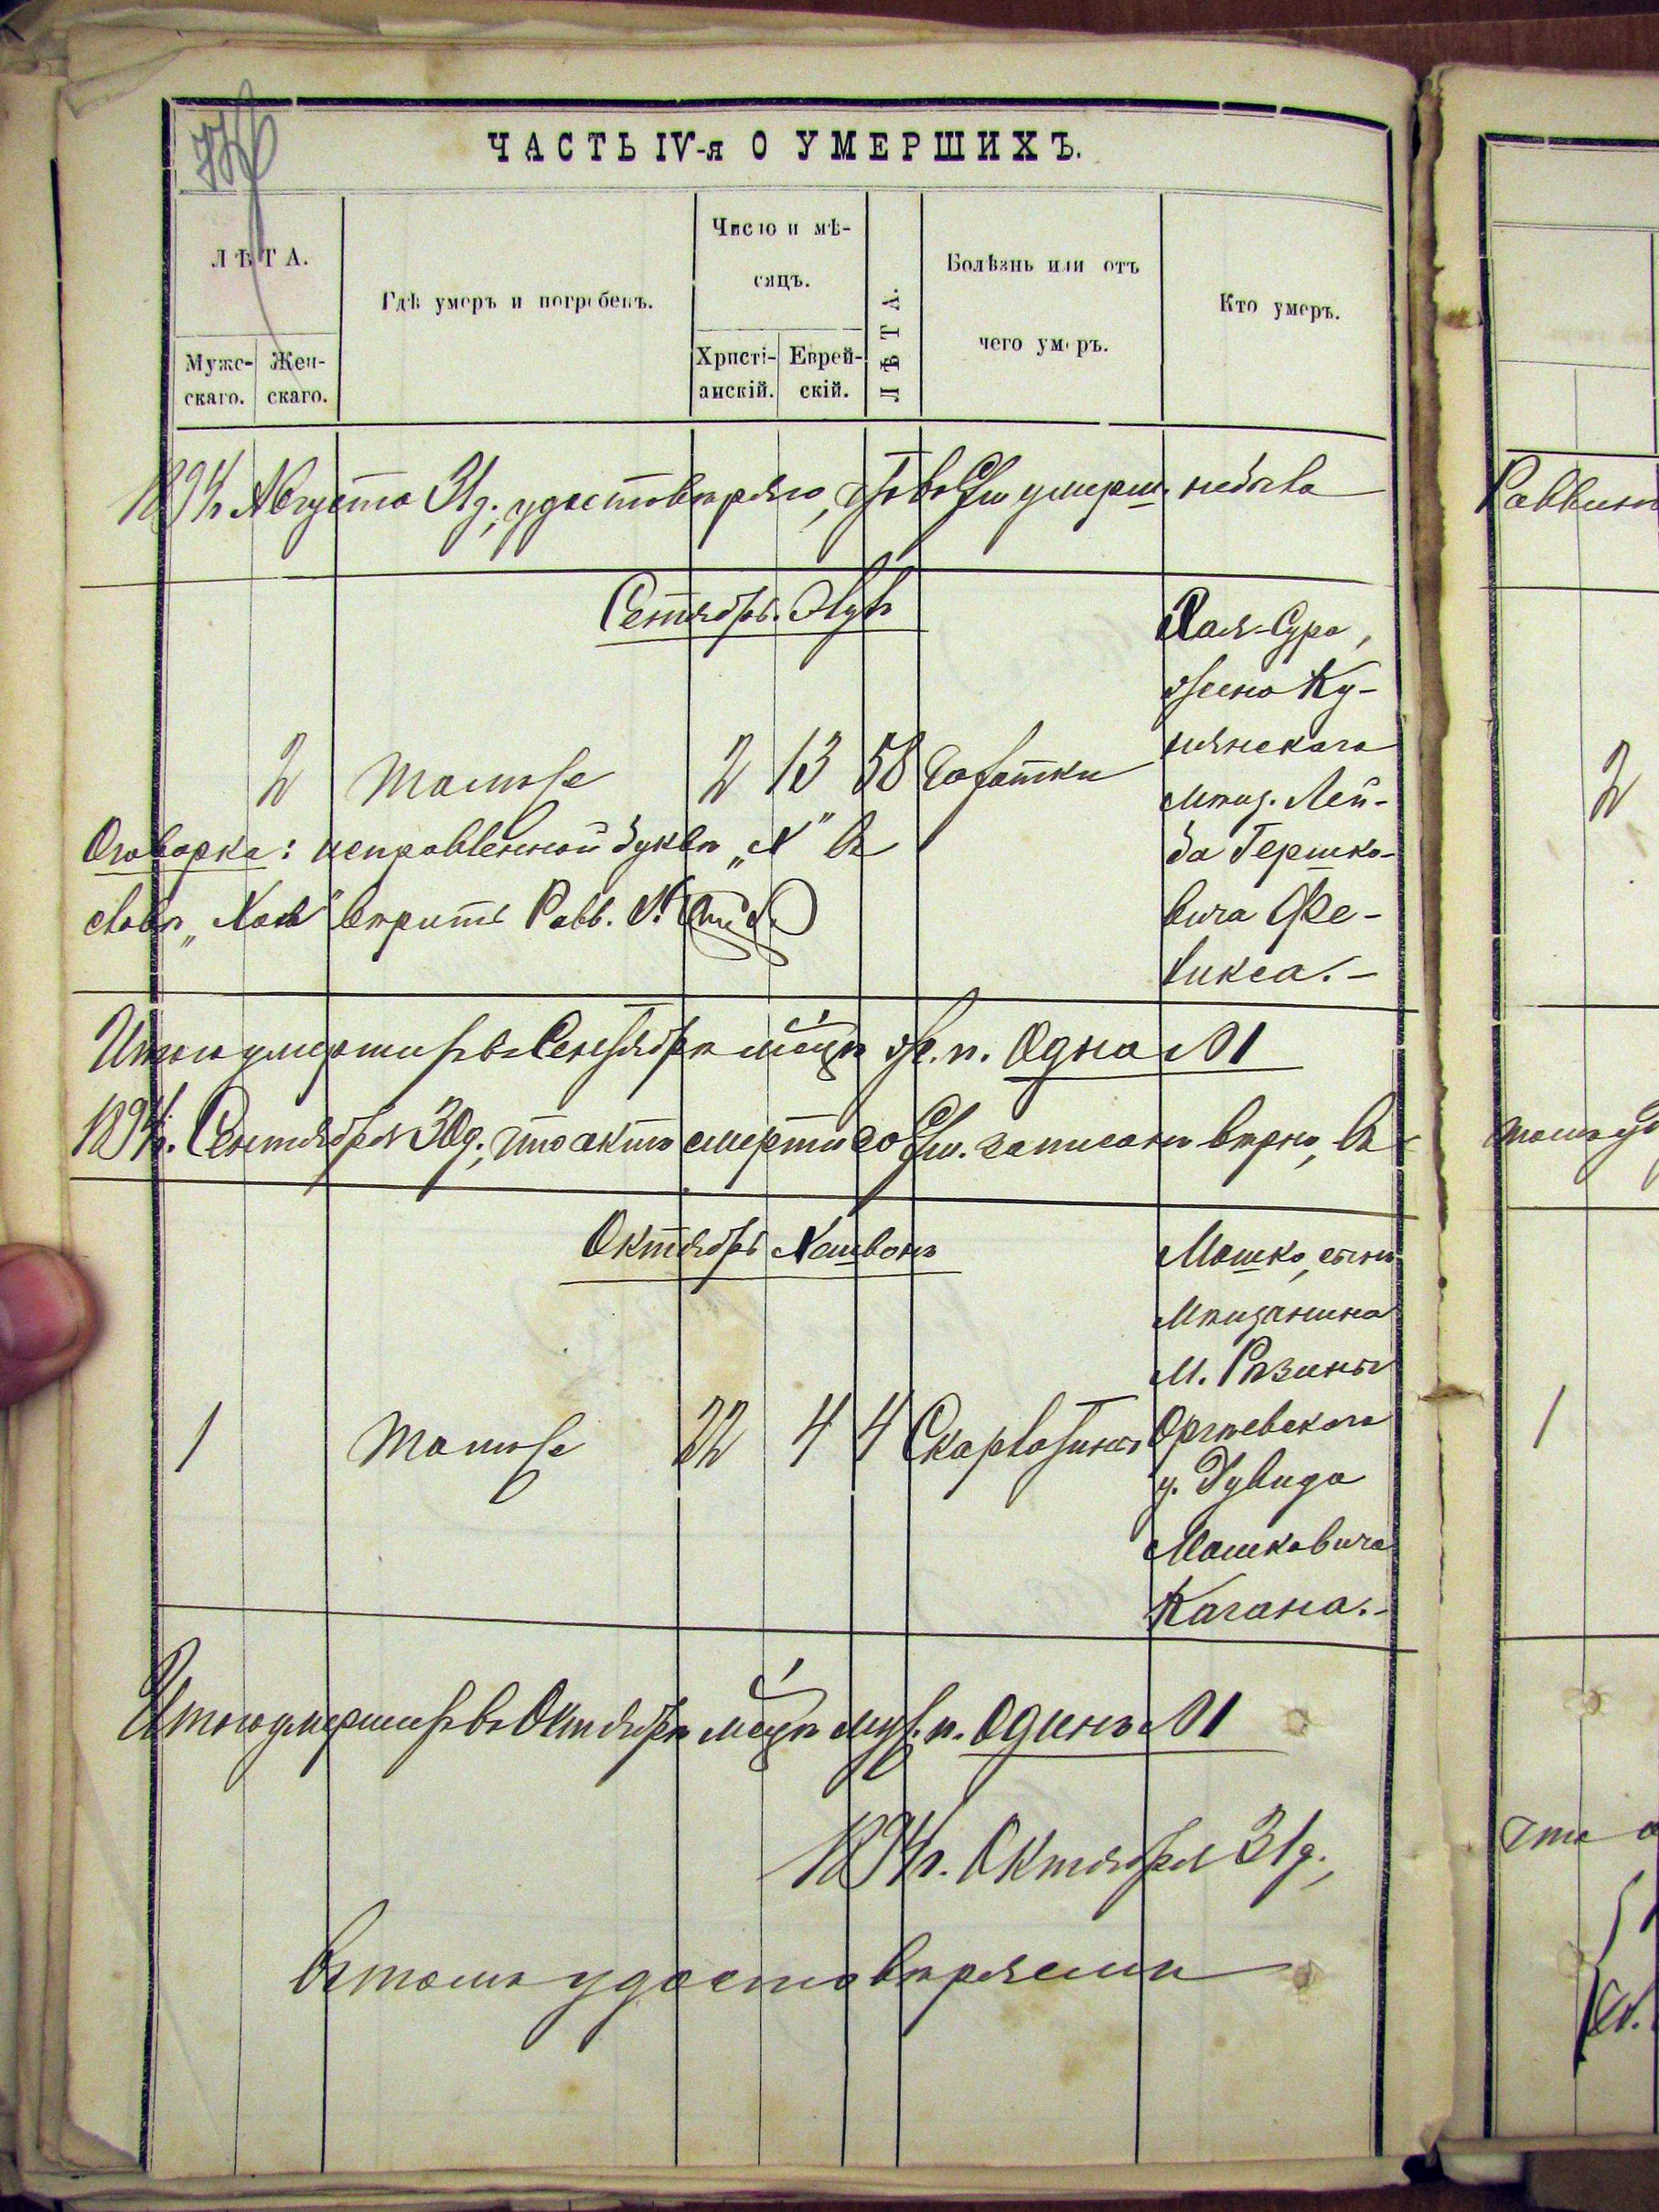 ЧАСТЬ IV-я О УМЕРШИХЪ.
ЛѢТА.
Муже-
скаго.
Жен-
скаго.
Гдѣ умеръ и погребенъ.
Число и мѣ-
сяцъ.
Христі-
анскій.
Еврей-
скій.
ЛѢТА.
Болѣзнь или отъ
чего умеръ.
Кто умеръ.
1894 г. Августа 31 д., удостовѣряю, умерш. небыло
Сентябрь. Элулъ
2 Тамже 2 13 58 Чахотки
Хая-Сура,
жена Ку-
мѣщ. Лей-
ба Гершко-
вича Фе-
ликса.-
Оговорка: исправленной буквѣ „Х" въ
словѣ „Хая" вѣрить Равв.
Итого умершихъ въ Сентябрѣ мѣцѣ ж. п. Одна №1
1894 г. Сентября 30 д., что актъ смерти записанъ вѣрно, въ
Октябрь Хешвонъ
1 Тамже 22 4 4 Скарлатины
Мошко, сынъ
мѣщанина
м. Рѣзины
Оргѣевскаго
у. Дувида
Мошковича
Кагана.-
Итого умершихъ въ Октябрѣ мѣцѣ муж. п. Одинъ №1
1894 г. Октября 31 д.,
въ томъ удостовѣряемъ
Раввинъ
2
томъ
1
что